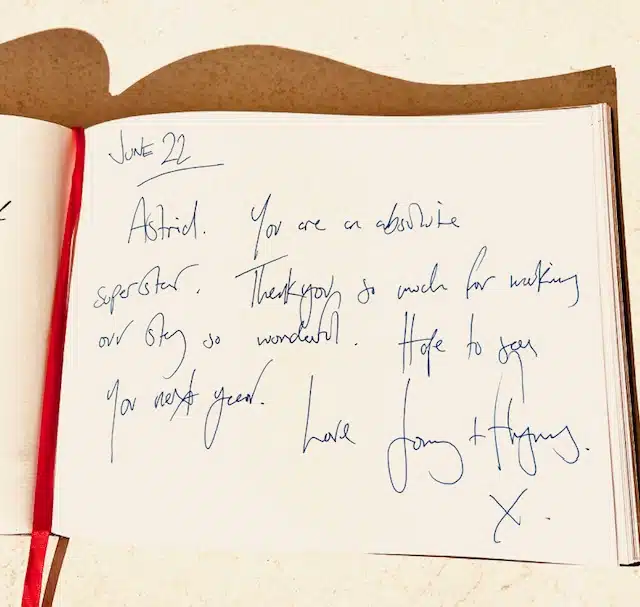 JUNE 22
Astrid. You are an absolute
superstar. Thankyou so much for making
our stay so wonderful. Hope to see
you next year.
Love + 
X.